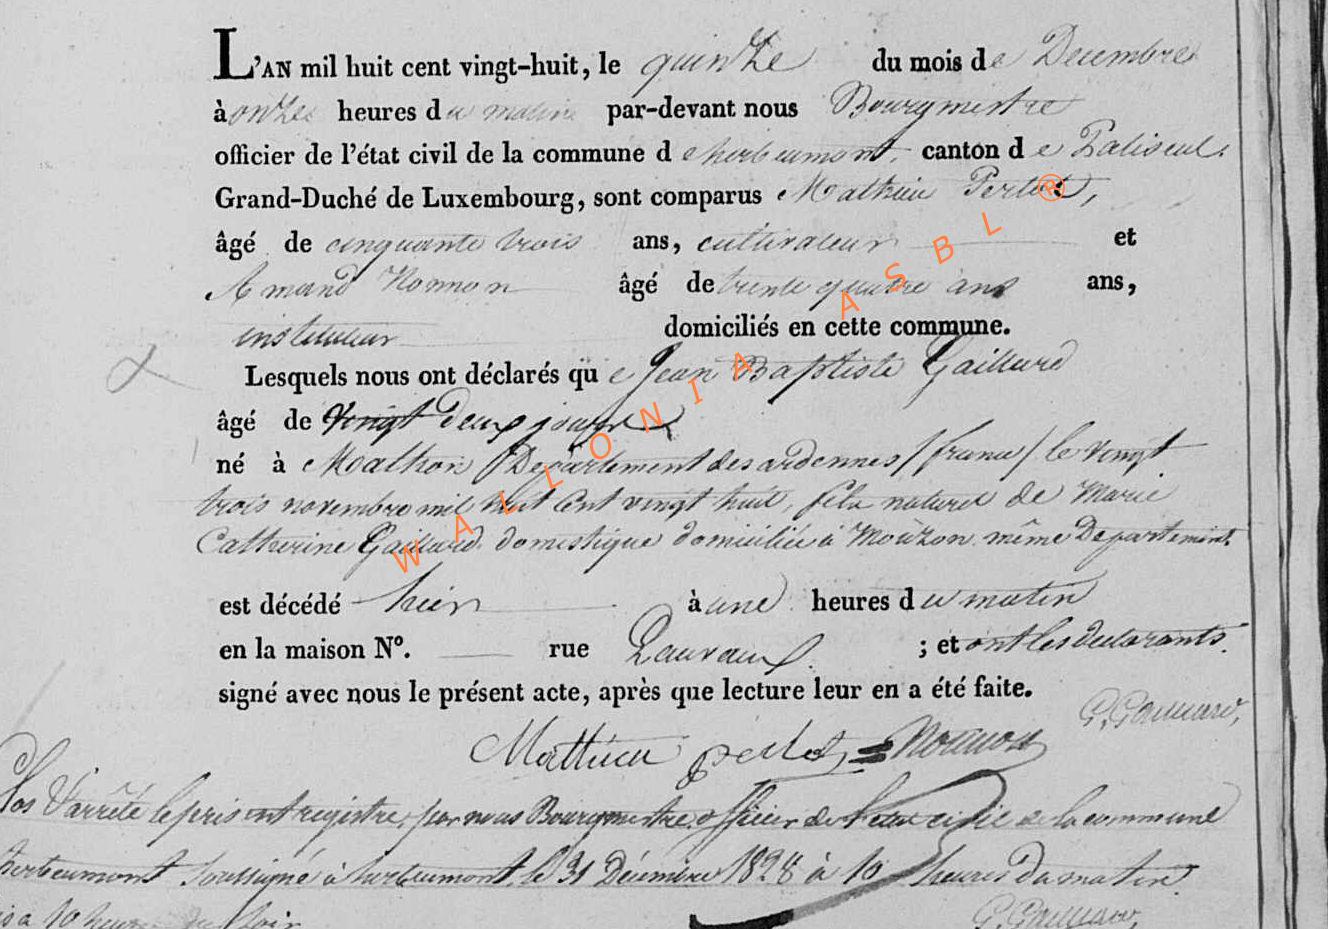 L'AN mil huit cent vingt-huit, le quinze du mois de Decembre
à onze heures du matin par-devant nous Bourgmestre
officier de l'état civil de la commune d'herbeumont, canton de Paliseul.
Grand-Duché de Luxembourg, sont comparus Mathieu Perlot,
âgé de cinquante trois ans, cultivateur et
Amand Nonnon âgé de trente quatre ans ans,
instituteur domiciliés en cette commune.
Lesquels nous ont déclarés que Jean Baptiste Gaillard
âgé de vingt deux jours
né à Malton (Département des ardennes / france / le vingt
trois novembre mil huit Cent vingt huit, fils naturel de Marie
Catherine Gaillard domestique domiciliée à Mouzon même Departement.
est décédé hier à une heures du matin
en la maison N°. rue ; et ont les declarants.
signé avec nous le présent acte, après que lecture leur en a été faite.
Mathieu perlot Nonnon
l'arrêté le présent registre, par nous Bourgmestre officier de l'état civil de la commune
herbeumont soussigné à herbeumont, le 31 Décembre 1828 à 10 heures du matin.
à 10 heures du soir
WALLONIA ASBL ®